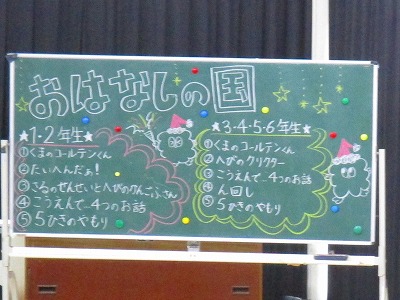 おはなしの国
★1・2年生★
①くまのコールテンくん
②たいへんだぁ!
③さるのせんせいとへびのかんごふさん
④こうえんで…4つのお話
⑤5ひきのやもり
★3・4・5・6年生★
①くまのコールテンくん
②へびのクリクター
③こうえんで…4つのお話
④ん回し
⑤5ひきのやもり